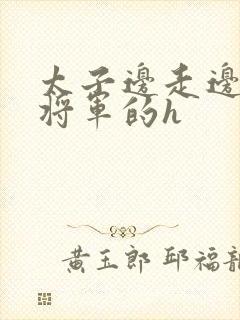 太子邊走邊
將軍的h
黃玉郎 邱福龍